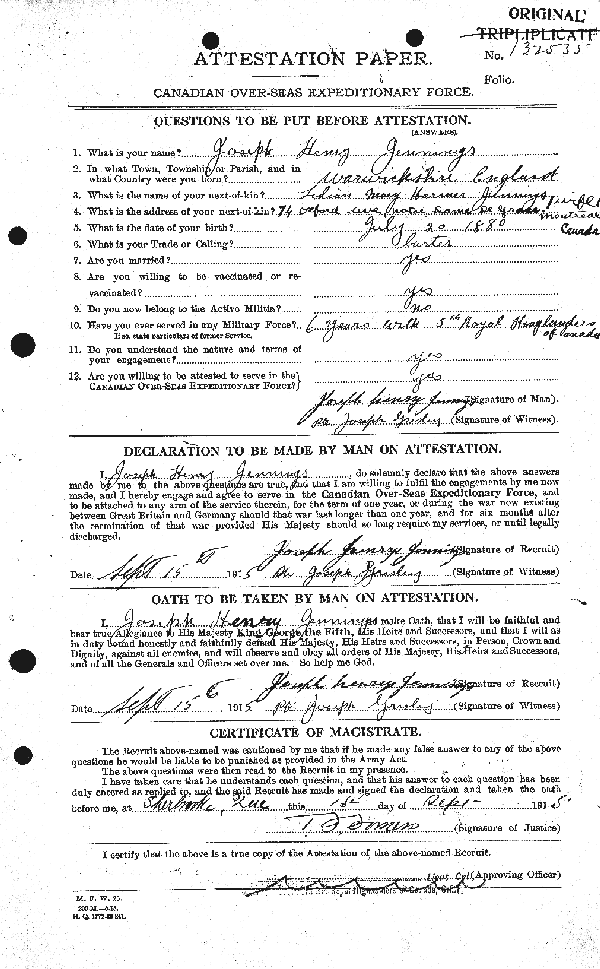 ORIGINAL
TRIPLIPLICATE
No. 132535
Folio.
ATTESTATION PAPER.
CANADIAN OVER-SEAS EXPEDITIONARY FORCE.
QUESTIONS TO BE PUT BEFORE ATTESTATION.
(ANSWERS).
1. What is your name? Joseph Henry Jennings
2. In what Town, Township or Parish, and in
what Country were you born? Warwickshire England
3. What is the name of your next-of-kin? Mary Jennings
4. What is the address of your next-of-kin? 74 Oxford ave Notre Dame De Grace
Montreal
Canada
5. What is the date of your birth? July 20 1880
6. What is your Trade or Calling?
7. Are you married? yes
8. Are you willing to be vaccinated or re-
vaccinated? yes
9. Do you now belong to the Active Militia? no
10. Have you ever served in any Military Force? 6 years with 5th Royal Highlanders
If so, state particulars of former Service. of Canada
11. Do you understand the nature and terms of
your engagement? yes
12. Are you willing to be attested to serve in the
CANADIAN OVER-SEAS EXPEDITIONARY FORCE? yes
Joseph Henry Jennings (Signature of Man).
Joseph (Signature of Witness).
DECLARATION TO BE MADE BY MAN ON ATTESTATION.
I, Joseph Henry Jennings, do solemnly declare that the above answers
made by me to the above questions are true, and that I am willing to fulfil the engagements by me now
made, and I hereby engage and agree to serve in the Canadian Over-Seas Expeditionary Force, and
to be attached to any arm of the service therein, for the term of one year, or during the war now existing
between Great Britain and Germany should that war last longer than one year, and for six months after
the termination of that war provided His Majesty should so long require my services, or until legally
discharged.
Joseph Henry Jennings (Signature of Recruit)
Date Sept 15th 1915 Joseph (Signature of Witness)
OATH TO BE TAKEN BY MAN ON ATTESTATION.
I, Joseph Henry Jennings do make Oath, that I will be faithful and
bear true Allegiance to His Majesty King George the Fifth, His Heirs and Successors, and that I will as
in duty bound honestly and faithfully defend His Majesty, His Heirs and Successors, in Person, Crown and
Dignity, against all enemies, and will observe and obey all orders of His Majesty, His Heirs and Successors,
and of all the Generals and Officers set over me. So help me God.
Joseph Henry Jennings (Signature of Recruit)
Date Sept 15th 1915 Joseph (Signature of Witness)
CERTIFICATE OF MAGISTRATE.
The Recruit above-named was cautioned by me that if he made any false answer to any of the above
questions he would be liable to be punished as provided in the Army Act.
The above questions were then read to the Recruit in my presence.
I have taken care that he understands each question, and that his answer to each question has been
duly entered as replied to, and the said Recruit has made and signed the declaration and taken the oath
before me, at Sherbrooke, Que this 15 day of Sept 1915
(Signature of Justice)
I certify that the above is a true copy of the Attestation of the above-named Recruit.
Lieut. Col. (Approving Officer)
M. F. W. 23.
H. Q. 1772-39-841.